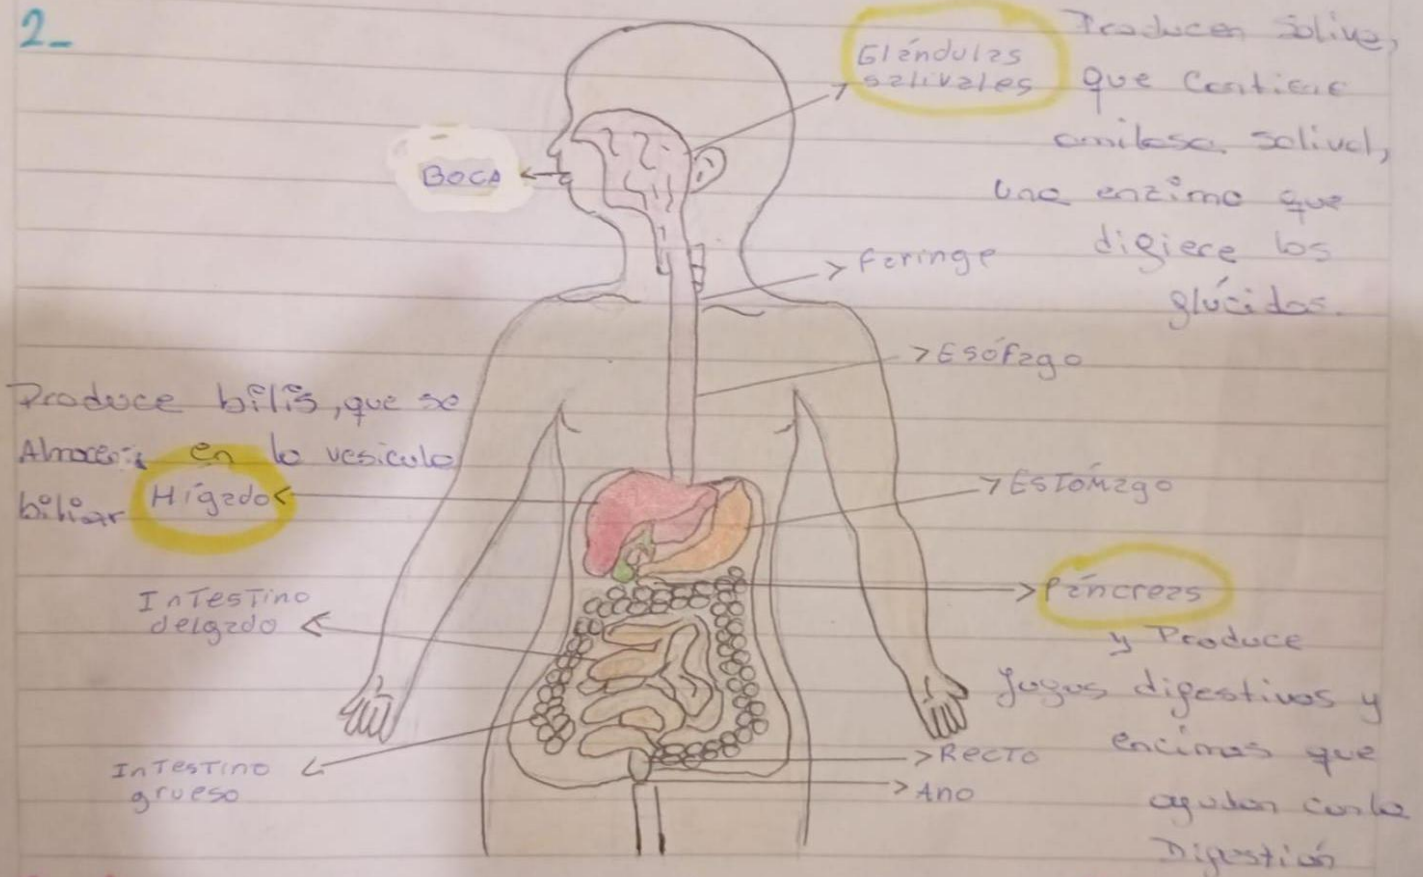 2-
Glándulas
salivales
Producen saliva,
que contiene
amilasa salival,
una enzima que
digiere los
glúcidos.
BOCA
Faringe
ESÓFAGO
Produce bilis, que se
Almacena en la vesicula
biliar
Hígado
ESTÓMAGO
Páncreas
y Produce
Jugos digestivos y
encimas que
ayudan con la
Digestión
InTesTino
delgado
InTesTino
grueso
RECTO
Ano